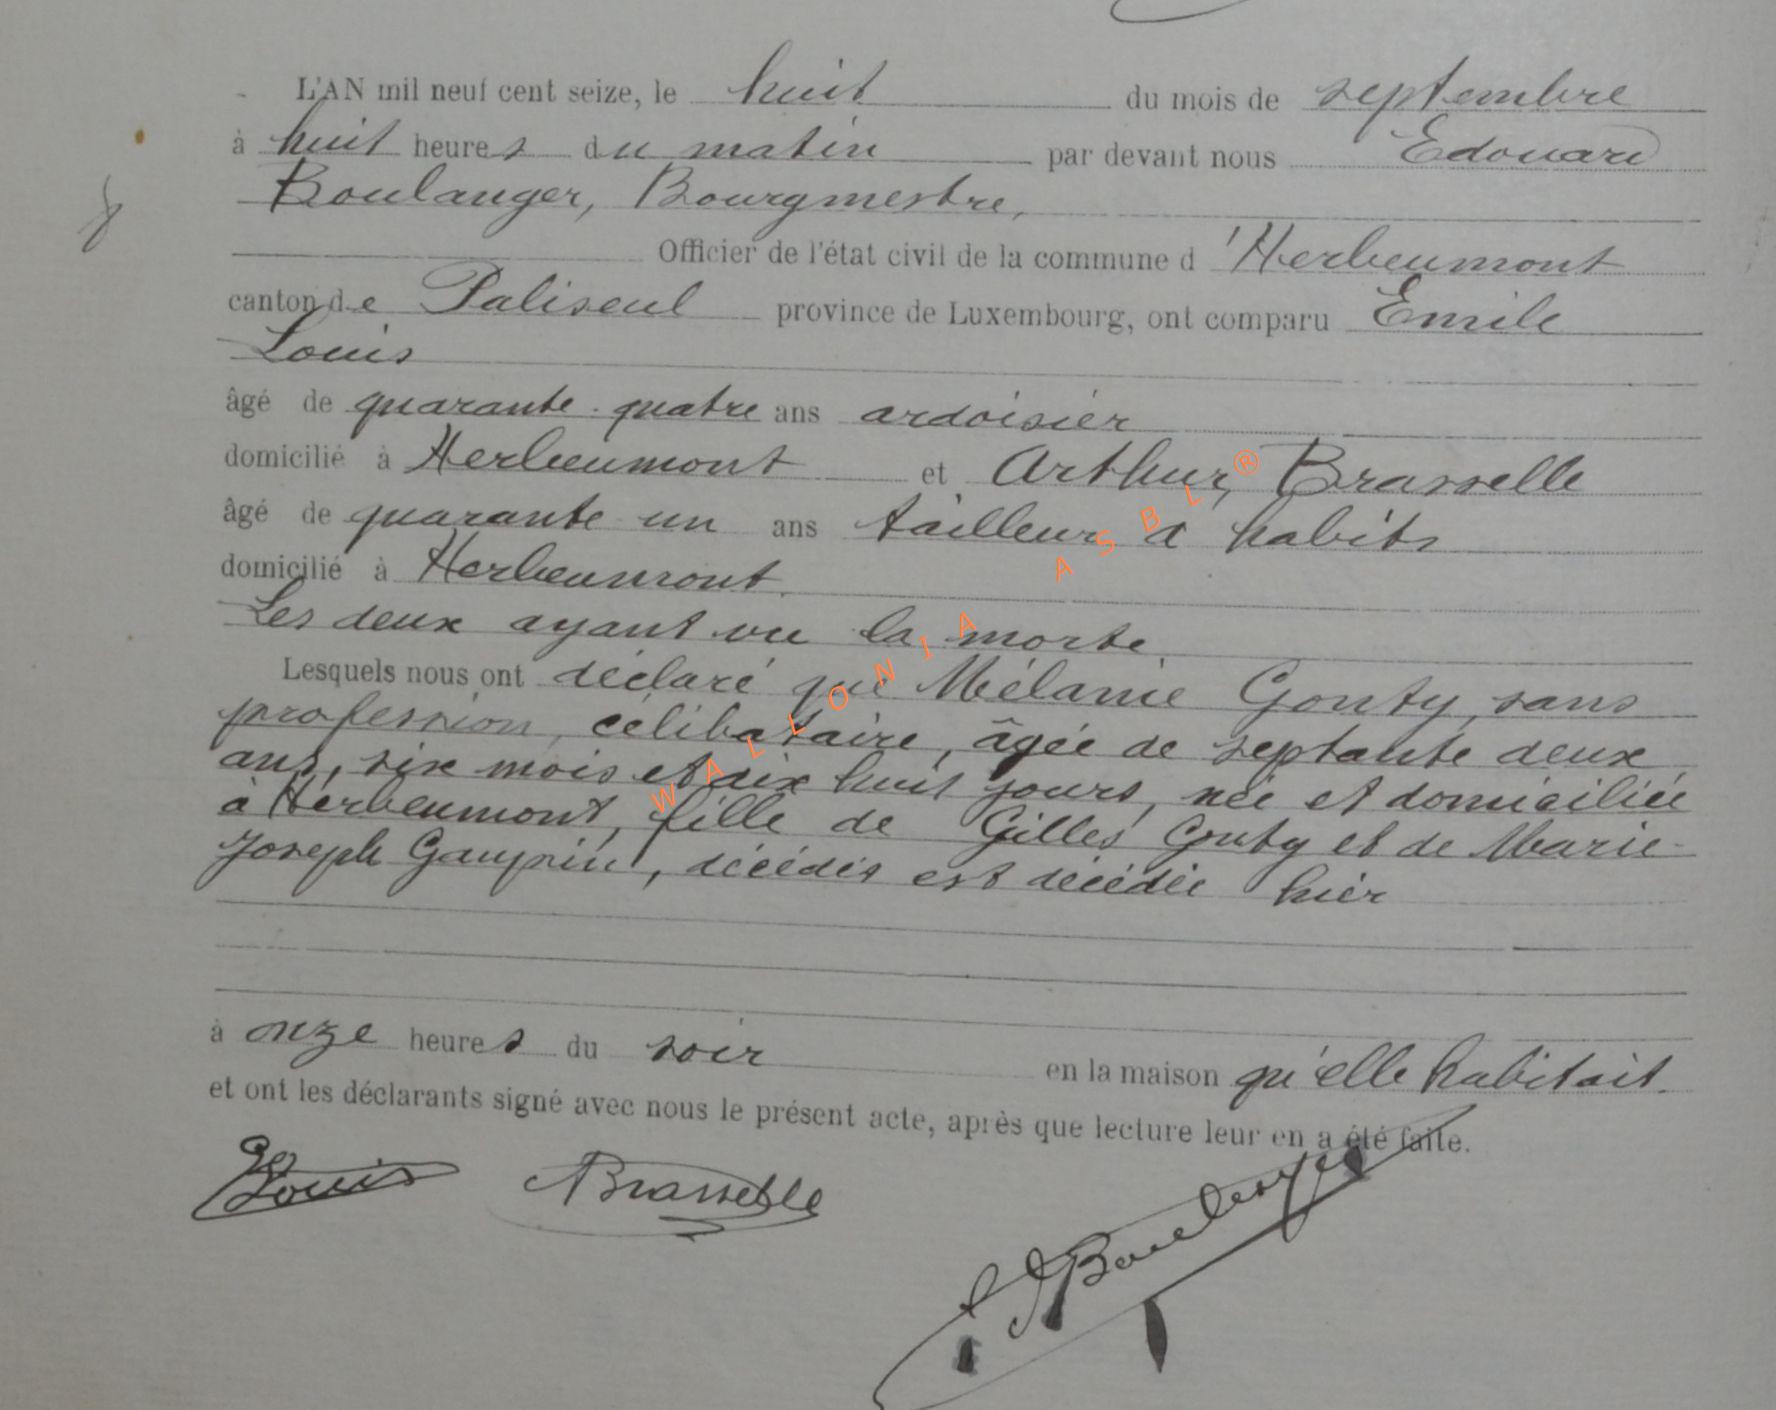 L'AN mil neuf cent seize, le huit du mois de septembre
à huit heures du matin par devant nous Edouard
Boulanger, Bourgmestre,
Officier de l'état civil de la commune d'Herbeumont
canton de Paliseul province de Luxembourg, ont comparu Emile
Louis
âgé de quarante-quatre ans ardoisier
domicilié à Herbeumont et Arthur Brasselle
âgé de quarante un ans tailleur d'habits
domicilié à Herbeumont.
Les deux ayant vu la morte
Lesquels nous ont déclaré que Mélanie Gouty, sans
profession, célibataire, âgée de septante deux
ans, six mois et dix huit jours, née et domiciliée
à Herbeumont, fille de Gilles Gouty et de Marie-
Joseph , décédés est décédée hier
à onze heures du soir en la maison qu'elle habitait.
et ont les déclarants signé avec nous le présent acte, après que lecture leur en a été faite.
Louis ABrasselle
Boulanger
WALLONIA ASBL ®